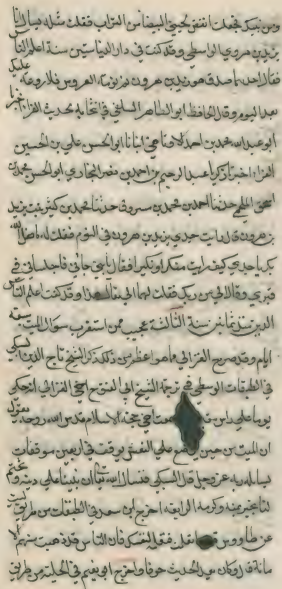 ومن نبيك فجعلت انفض لحيتي البيضاء من التراب فقلت مثلي يسأل انا
يزيد بن هرون الواسطي وقد كنت في دار الدنيا ستين سنة اعلم الناس
فقال احدهما صدق هو يزيد بن هرون نم نومة العروس فلا روعة عليك
بعد اليوم وقال الحافظ ابو الطاهر السلفي في
ابو عبد الله محمد بن احمد انبانا ابو الحسن علي بن الحسين
الفراء عبد الرحيم بن احمد بن نصر البخاري ابو الحسن محمد بن
اسحق حدثنا احمد بن محمد بن مسروق حدثنا محمد بن كثير بن بنت يزيد
بن هرون قال رايت جدي يزيد بن هرون في النوم فقلت له ما فعل الله
بك يا جدي كيف رايت منكر ونكير فقال يا بني جاآني فاجلساني في
قبري وقالا لي من ربك فقلت لهما الي يقال هذا وقد كنت اعلم الناس
الدين ثمانين سنة الثالثة عجيب ممن استغرب سؤال الميت سبعة
ايام وقد صرح الغزالي ما هو اعظم من ذلك ذكر الشيخ تاج الدين السبكي
في الطبقات الوسطى في ترجمة الشيخ ابي الفتوح اخي الغزالي انه حكى
يوما على راس حجة الاسلام قدس الله روحه يقول
ان الميت من حين يوضع على النعش يوقف في اربعين موقفا
يسائله ربه عز وجل قال السبكي فنسال الله تعالى ان يثبتنا على دينه ويختم
لنا بخير بمنه وكرمه الرابعة اخرج ابن سعد في الطبقات من طريق ليث
عن طاووس
ما نه قال وكان يعد الحديث حرفا حرفا واخرج ابو نعيم في الحلية من طريق